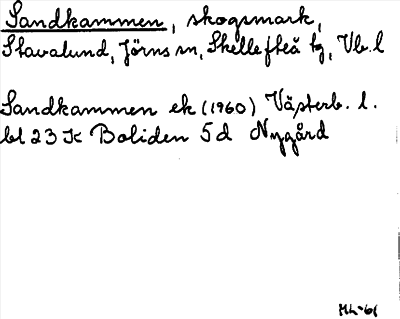 Sandkammen, skogsmark,
Stavalund, Jörns sn, Skellefteå tg, Vb.l
Sandkammen ek (1960) Västerb. l.
bl 23 K Boliden 5d Nygård
ML-61